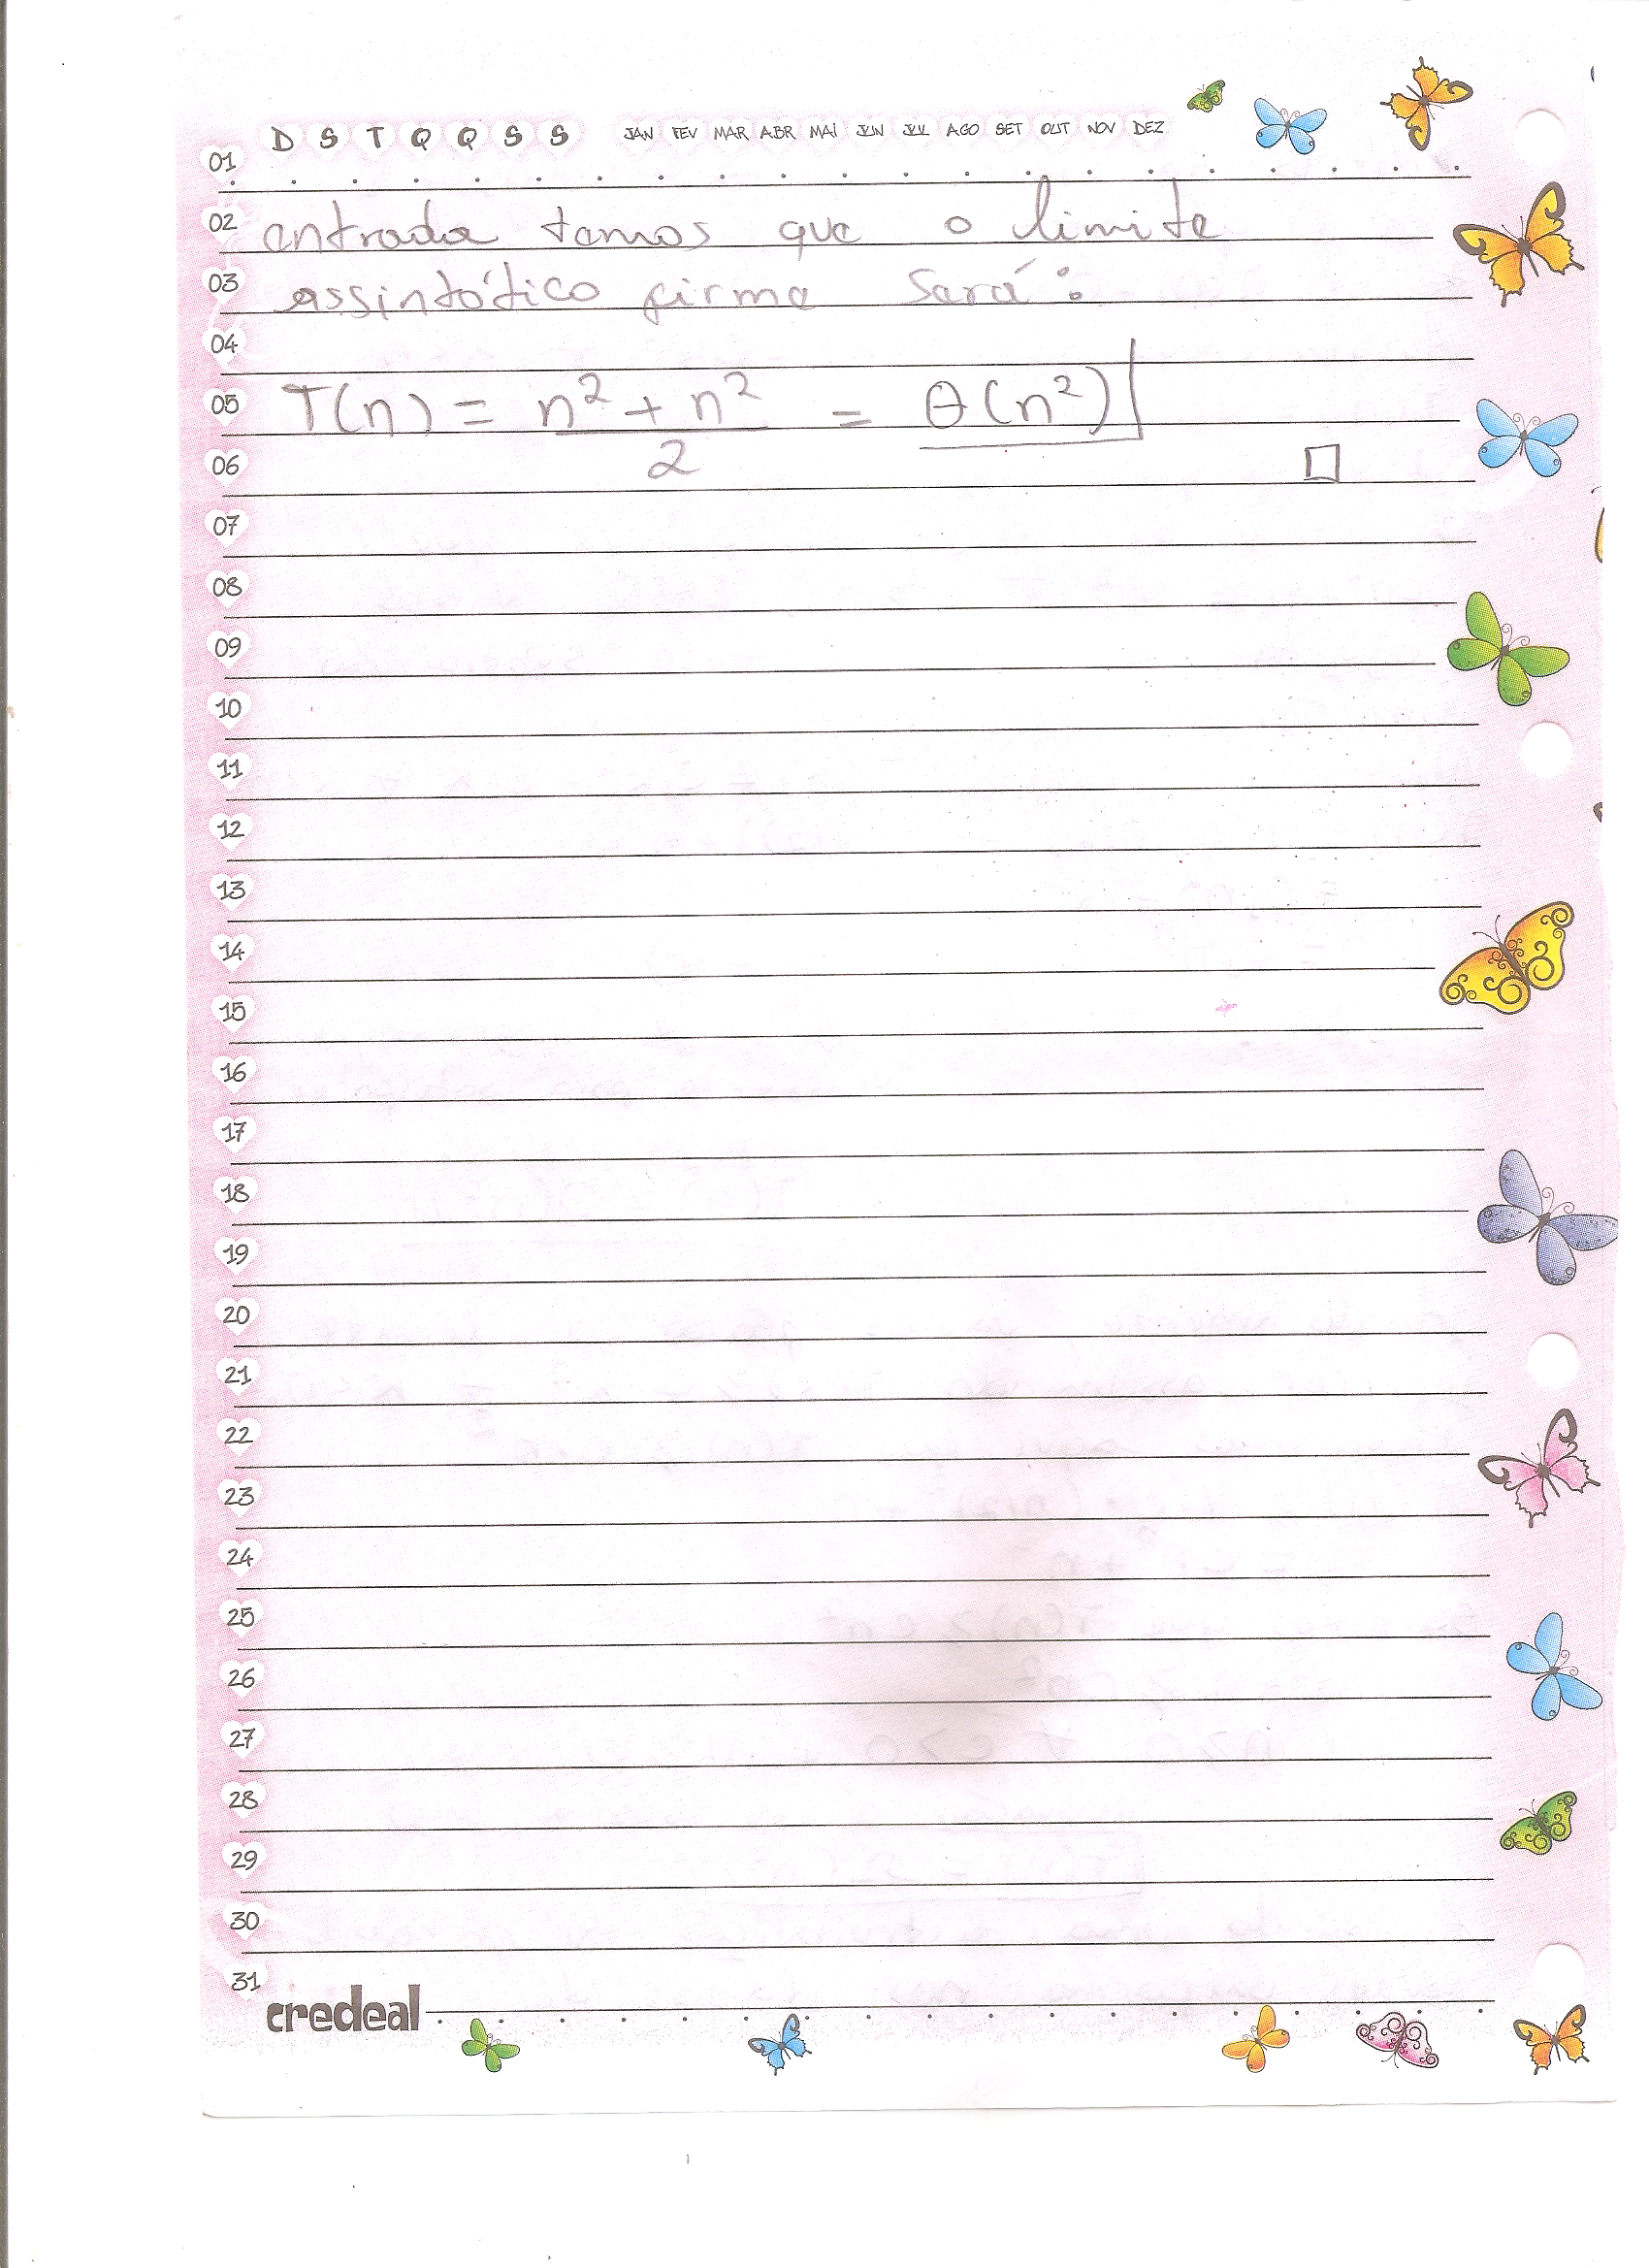 D S T Q Q S S JAN FEV MAR ABR MAI JUN JUL AGO SET OUT NOV DEZ
01
02 entrada temos que o limite
03 assintótico firme será:
04
05 T(n) = n² + n² = θ(n²)
06 2 □
07
08
09
10
11
12
13
14
15
16
17
18
19
20
21
22
23
24
25
26
27
28
29
30
31
credeal